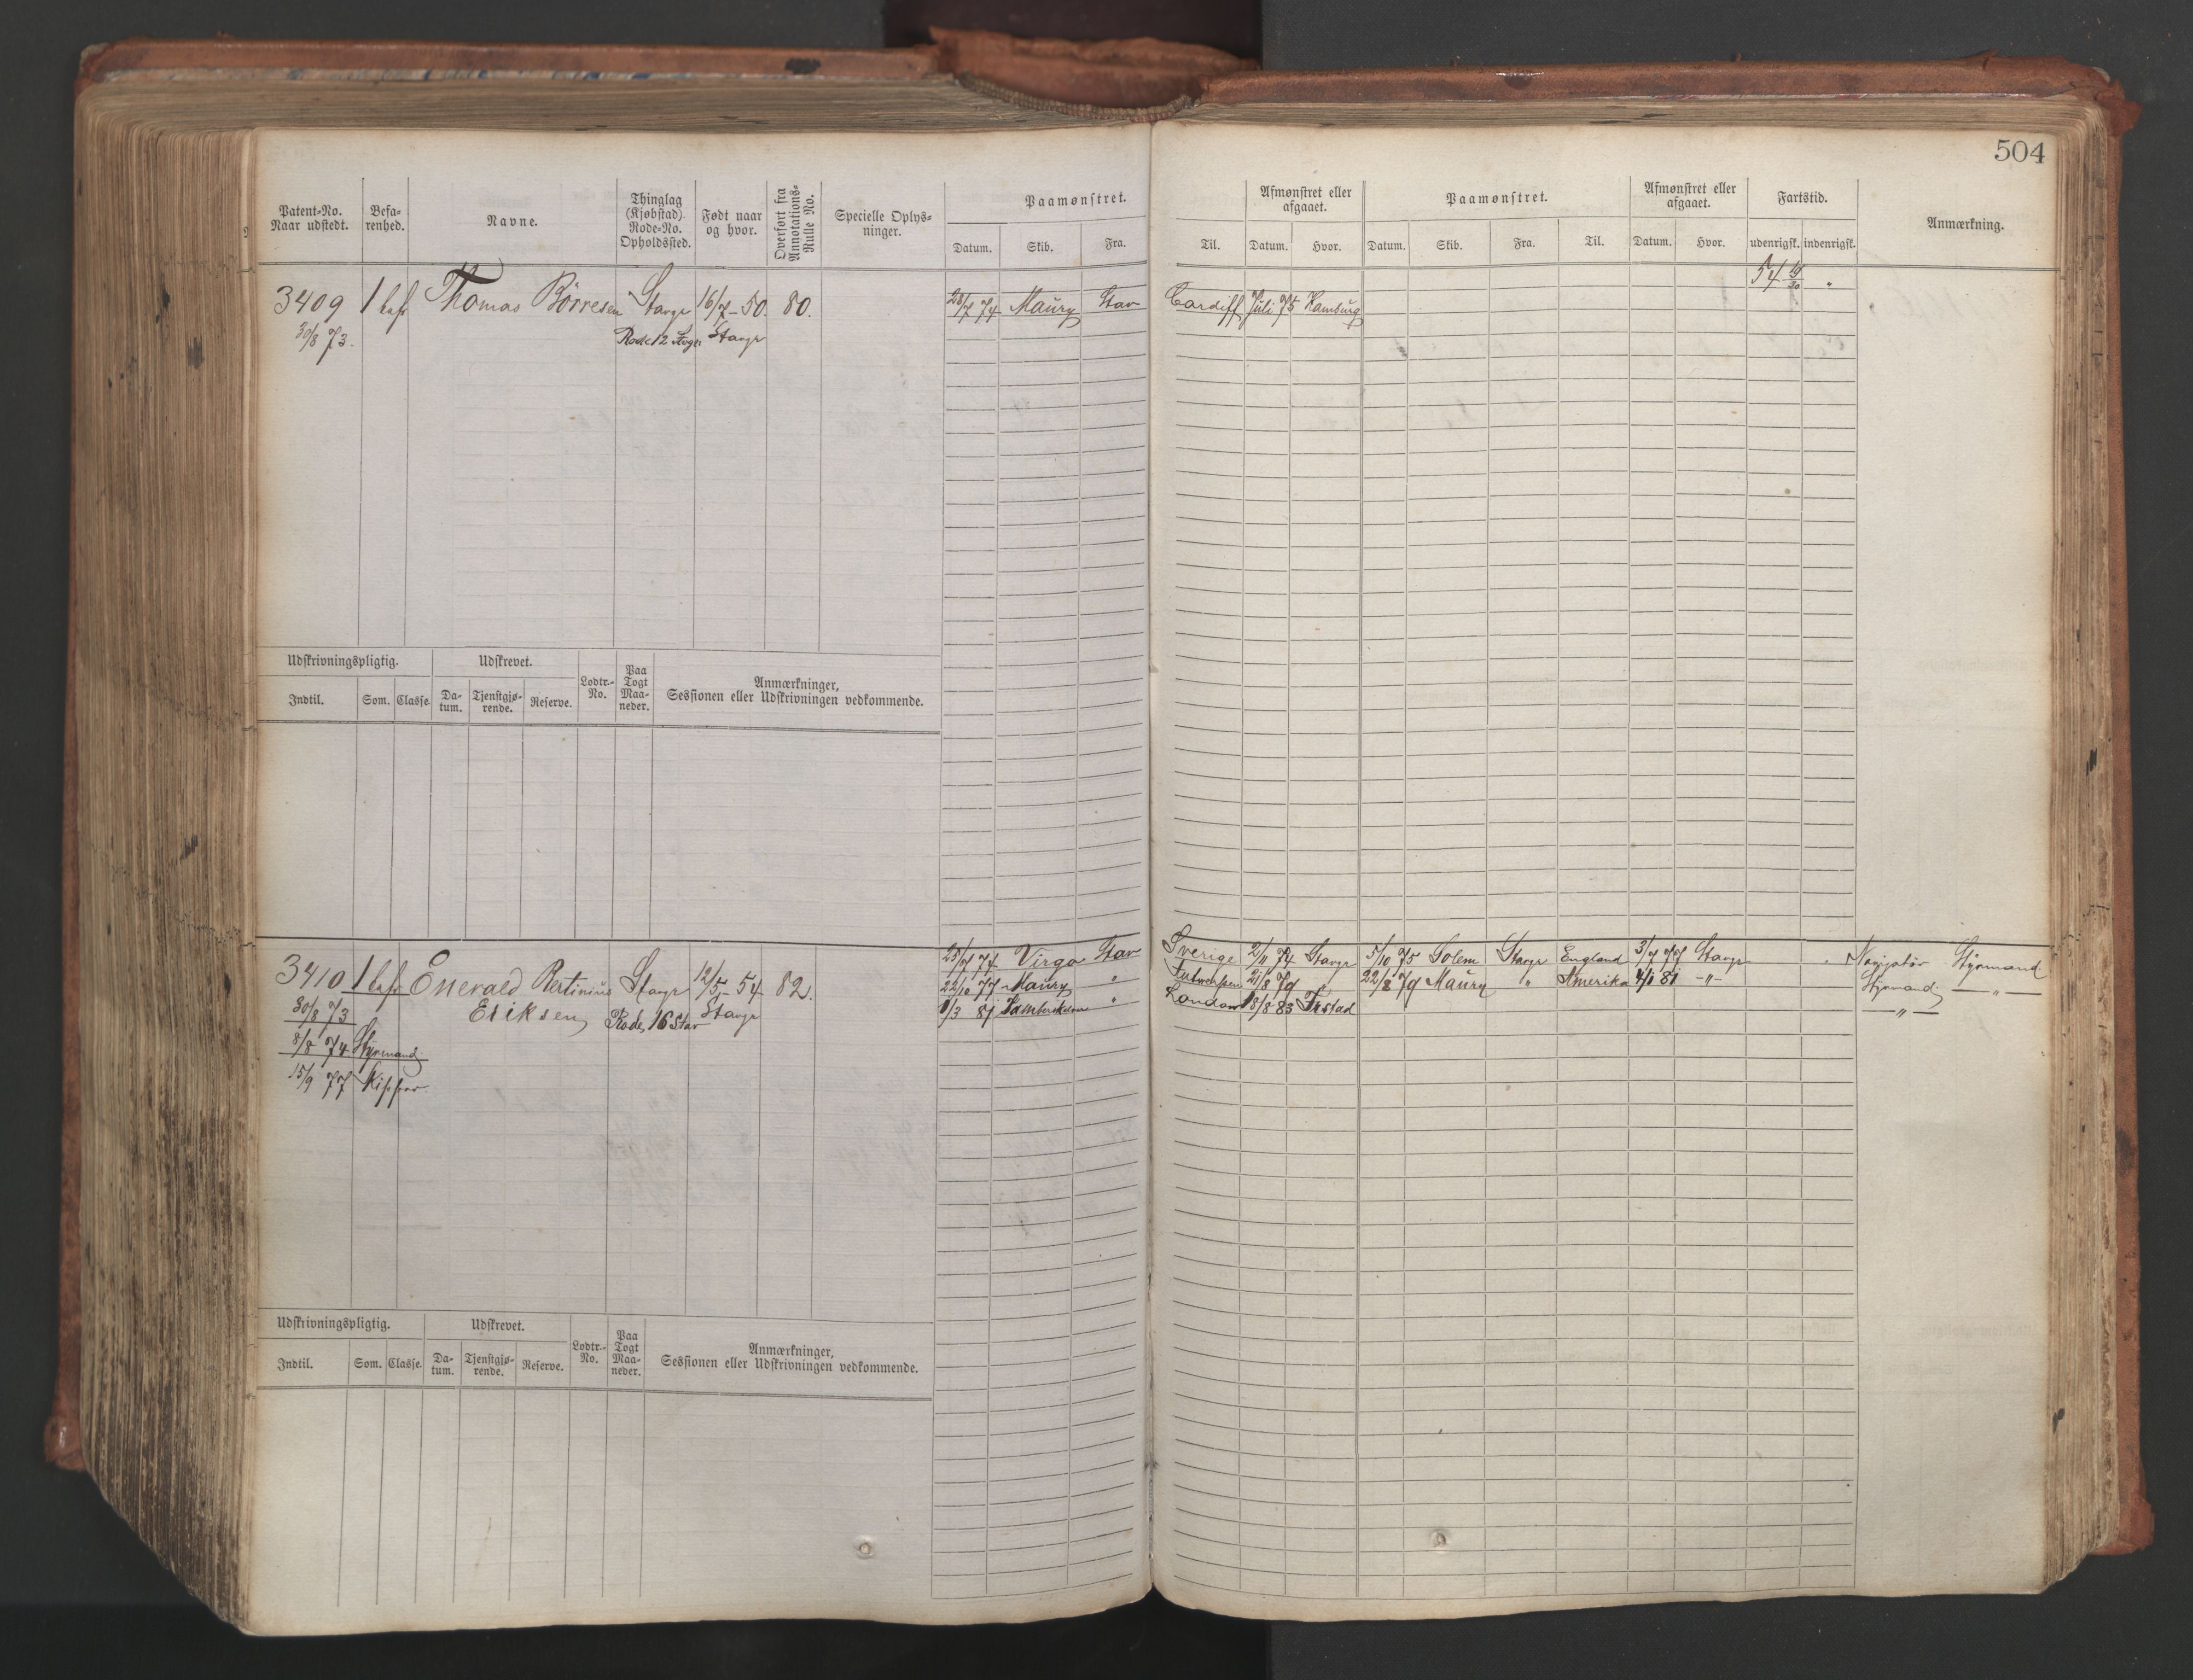 504
Patent-No. Naar udstedt. Befa-renhed. Navne. Thinglag (Kjøbstad) Rode-No. Opholdssted. Født naar og hvor. Overført fra Annotations-Rulle No. Specielle Oplys-ninger. Paamønstret. Datum. Skib. Fra. Til. Afmønstret eller afgaaet. Datum. Hvor. Paamønstret. Datum. Skib. Fra. Til. Afmønstret eller afgaaet. Datum. Hvor. Fartstid. udenrigsk. indenrigsk. Anmærkning.
54 "
3409 1 bef Thomas Börresen Stavgr 16/7-50. 80. 28/7 74 Maury Stav Cardiff Juli 75 Hamburg
30/8 73. Rode 12 Stavgr
Udskrivningspligtig. Indtil. Som. Classe. Udskrevet. Da-tum. Tjenstgjø-rende. Reserve. Lodtr.-No. Paa Togt Maa-neder. Anmærkninger, Sessionen eller Udskrivningen vedkommende.
3410 1 bef Enevald Bertinius Stavgr 12/5-54 82. 25/7 74 Virgo Stav Sverige 2/11 74 Stavgr 5/10 75 Solem Stavgr England 3/7 77 Stavgr Styrmand
22/10 77 Maury " 21/8 79 " 22/8 79 Maury " Amerika 4/1 81 -"- Styrmand -"-
30/8 73 Eriksen Rode 16 Stav Stavgr 1/3 81 " London 18/8 83 -"-
8/8 74 Styrmand
15/9 77
Udskrivningspligtig. Indtil. Som. Classe. Udskrevet. Da-tum. Tjenstgjø-rende. Reserve. Lodtr.-No. Paa Togt Maa-neder. Anmærkninger, Sessionen eller Udskrivningen vedkommende.